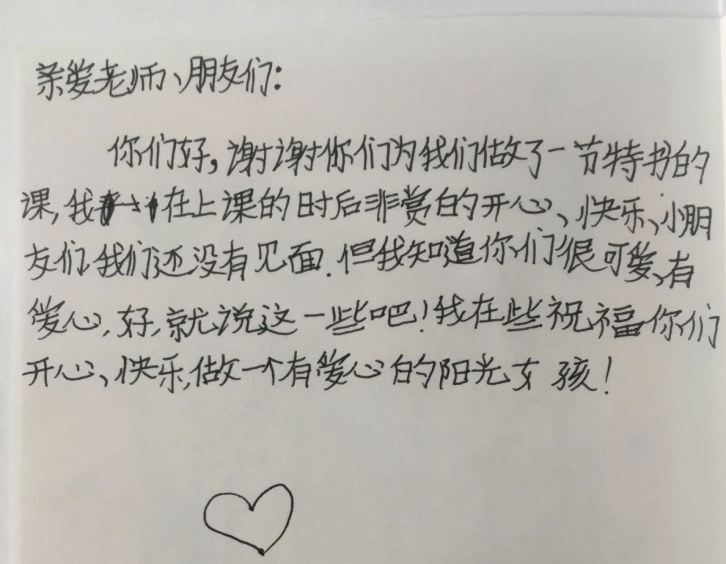 亲爱老师、朋友们：
你们好，谢谢你们为我们做了一节特书的
课，我在上课的时后非赏的开心、快乐、小朋
友们我们还没有见面．但我知道你们很可爱、有
爱心，好，就说这一些吧！我在些祝福你们
开心、快乐，做一个有爱心的阳光女孩！